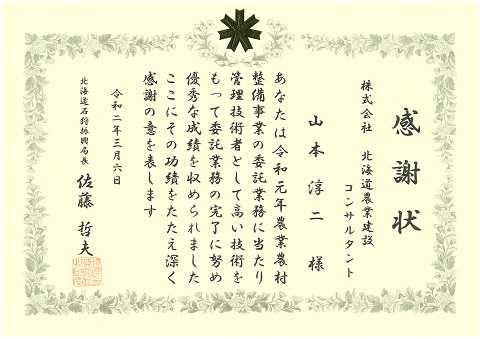 感謝状
株式会社 北海道農業建設
コンサルタント
山本淳二様
あなたは令和元年農業農村
整備事業の委託業務に当たり
管理技術者として高い技術を
もって委託業務の完了に努め
優秀な成績を収められました
ここにその功績をたたえ深く
感謝の意を表します
令和二年三月六日
北海道石狩振興局長 佐藤哲夫